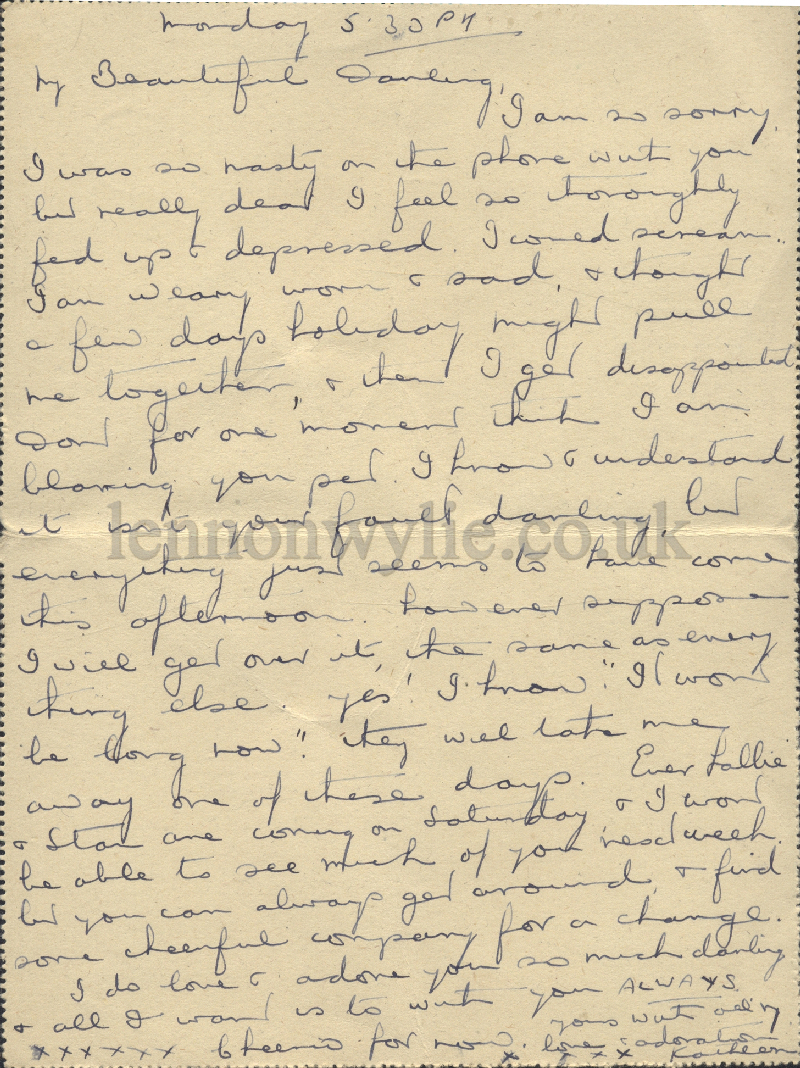 Monday 5.30 PM
My Beautiful Darling,
I am so sorry
I was so nasty on the phone with you
but really dear I feel so thoroughly
fed up & depressed. I could scream..
I am weary worn & sad, & thought
a few days holiday might pull
me together, & then I get disappointed
Dont for one moment think I am
blaming you pet. I know & understand
it isn't your fault darling, but
everything just seems to have come
this afternoon. However suppose
I will get over it, the same as every
thing else. Yes! I know "It wont
be long now". They will take me
away one of these days. Ever Lallie
& Stan are coming on Saturday & I wont
be able to see much of you next week.
but you can always get around, & find
some cheerful company for a change.
I do love & adore you so much darling
& all I want is to with you ALWAYS.
yours with all my
xxxxxx Cheerio for now. love & adoration
x xxx Kathleen
lennonwylie.co.uk